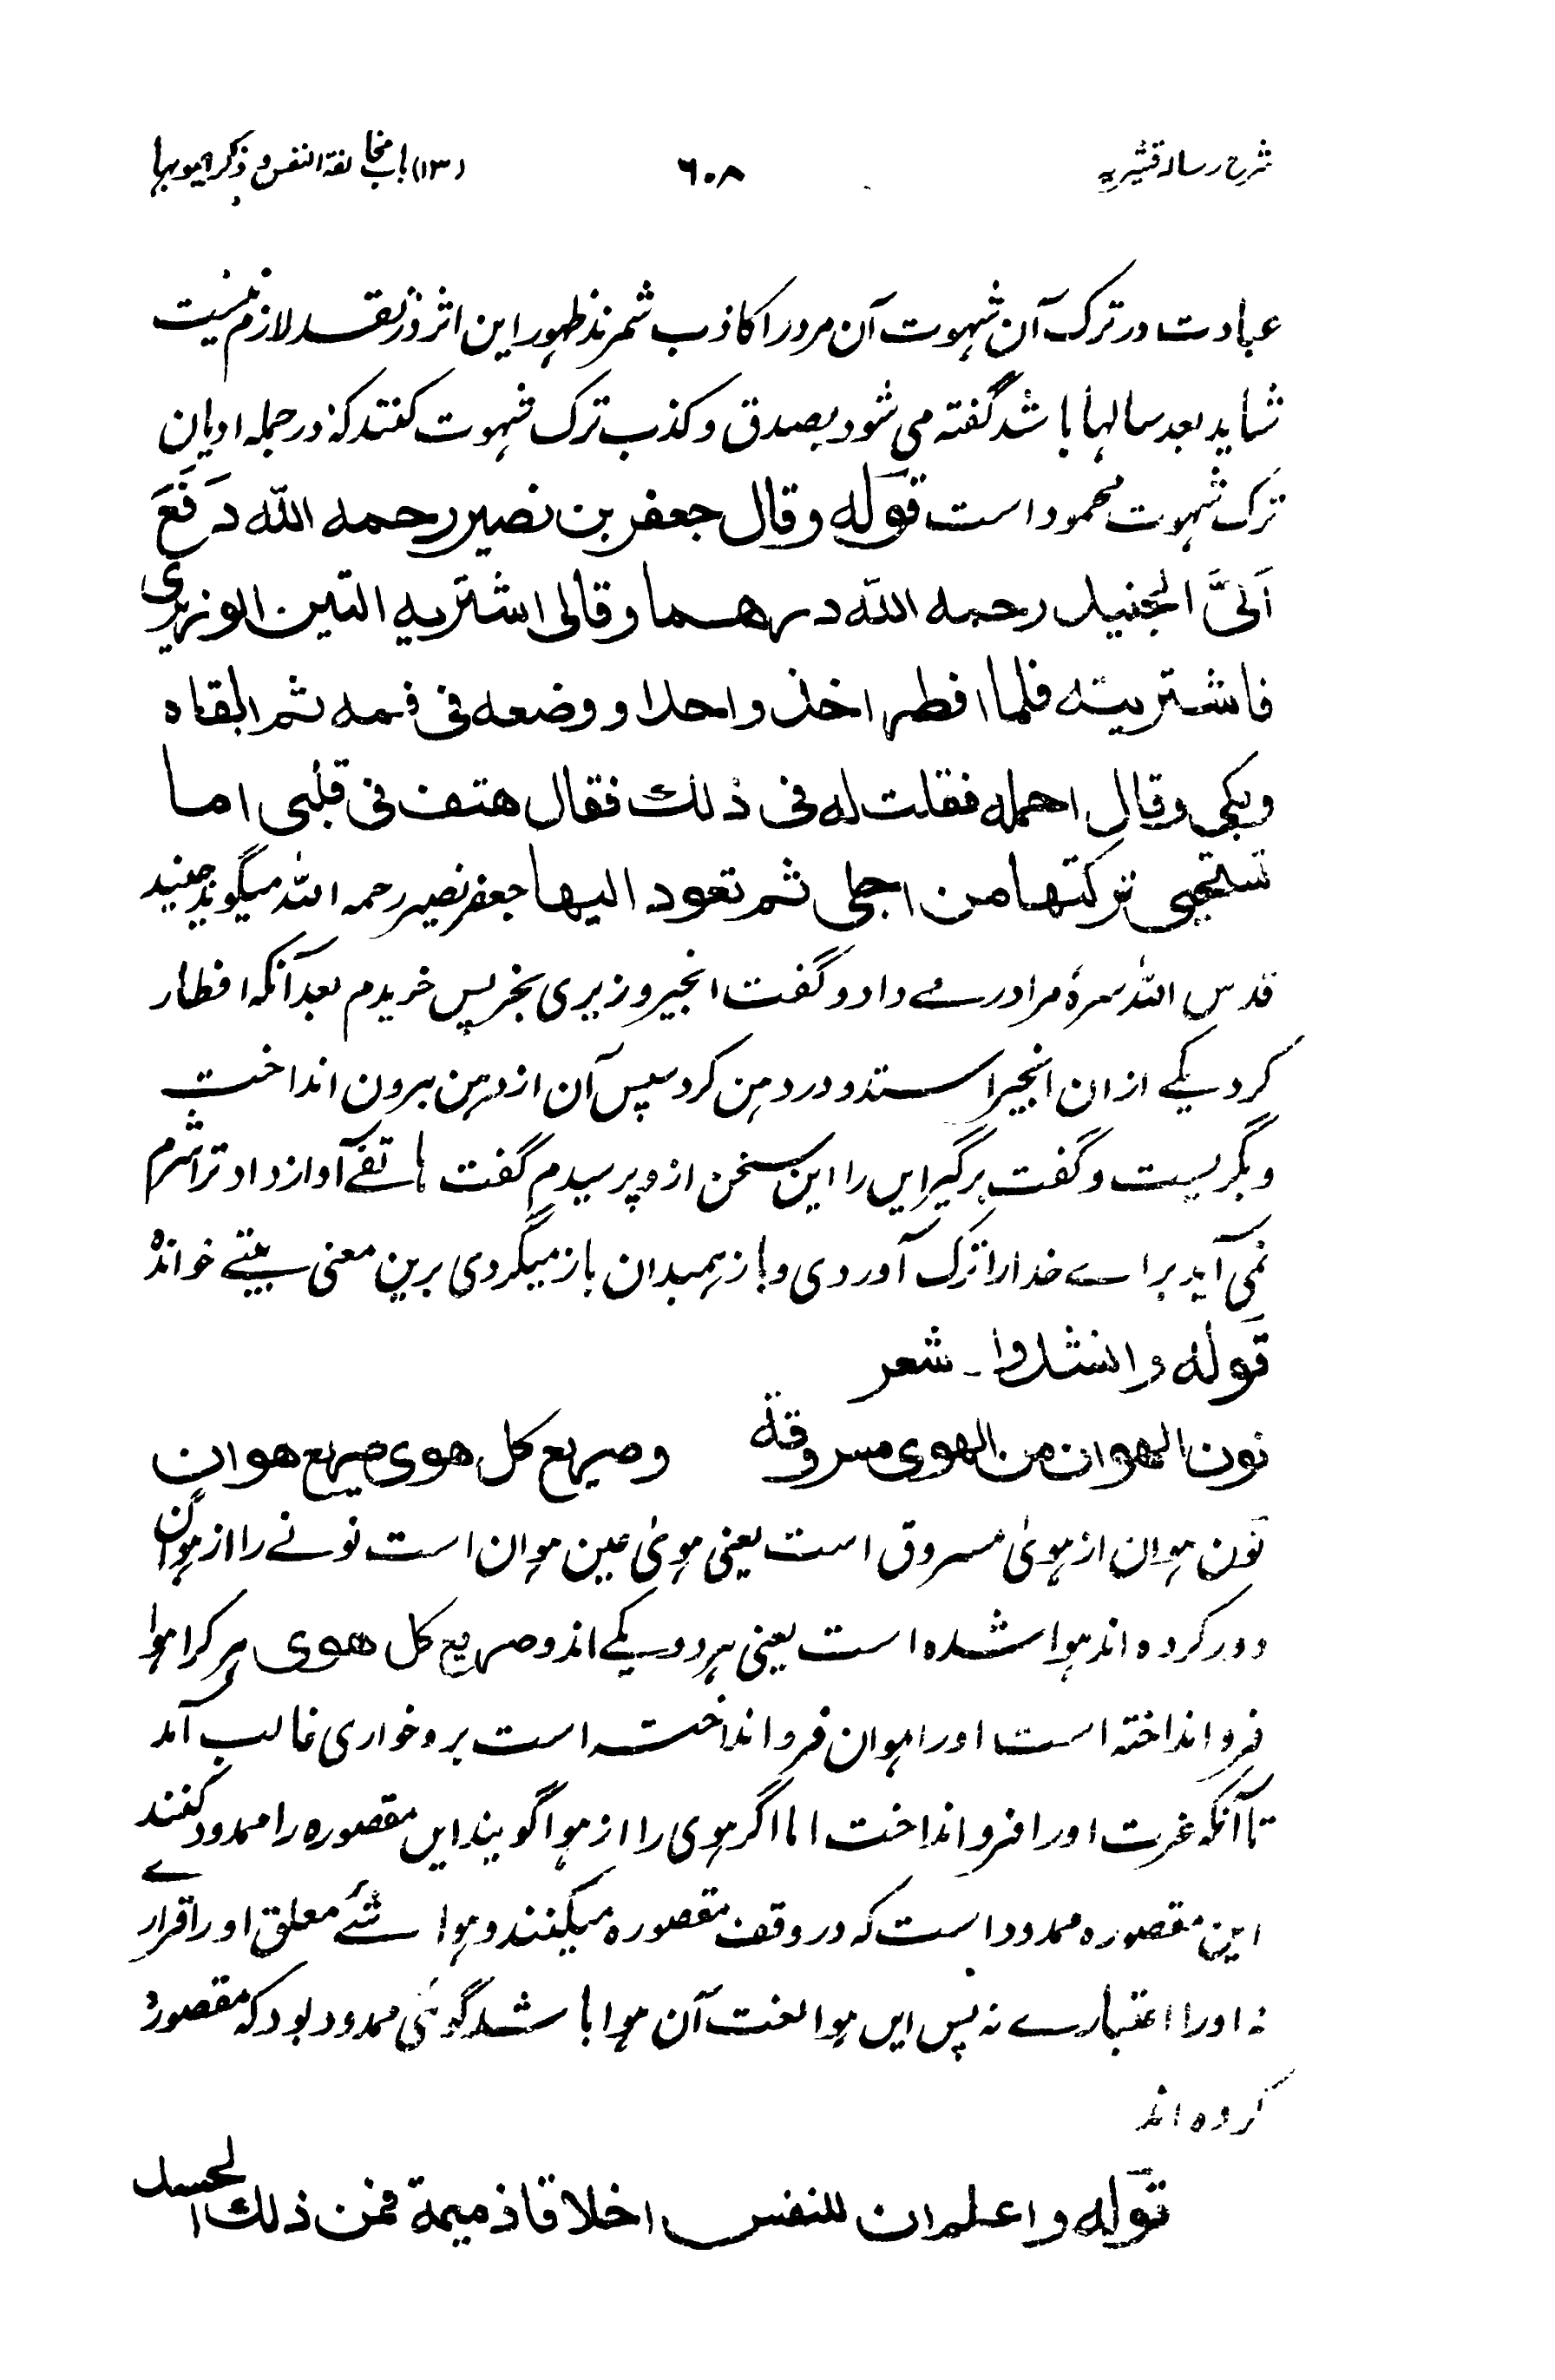 شرح رساله قشیریه ۶۰۸ (۱۳) باب مخالفة النفس و ذکر عیوبها
عبادت در ترک آن شهوت آن مرد را کاذب شمرند ظهور این اثر در نقد لازم نیست
شاید بعد سالها باشد گفته می شود بصدق و کذب ترک شهوت کنند که در جمله ادیان
ترک شهوت محمود است قوله وقال جعفر بن نصیر رحمه الله دَفَعَ
اَلیَّ الجنید رحمه الله درهما وقالی اشتر به التین الوزیری
فاشتریته فلما افطر اخذ واحدا ووضعه فی فمه ثم القاه
وبکی وقال احمله فقلت له فی ذلك فقال هتف فی قلبی اما
تستحیی ترکتها من اجلی ثم تعود الیها جعفر نصیر رحمه الله میگوید جنید
قدس الله سرهٗ مرا درمے داد و گفت انجیر وزیری بخر پس خریدم بعد آنکه افطار
کرد یکے ازان انجیرا ستد و در دہن کرد سپس آن از دہن بیرون انداخت
و بگریست و گفت برگیر ایں را این سخن از و پرسیدم گفت ہاتفے آواز داد ترا شرم
نمی آید براے خدا را ترک آوردی و باز ہمبدان باز میگردی برین معنی بیتے خواندہ
قوله وانشدوا ۔ شعر
نون الهوان من الهوی مسروقة وصریع کل هوی صریع هوان
نون ہوان از ہویٰ مسروق است یعنی ہویٰ عین ہوان است نونے را از ہوان
دور کرده اند ہوا شده است یعنی ہر دو یکے اند وصریع کل هوی ہر کرا ہوا
فرو انداخته است اورا ہوان فرو انداخته است برو خواری غالب آمد
تا آنکه غرت اورا فرو انداخت اما اگر ہوی را از ہوا گویند ایں مقصوره را ممدود کنند
این مقصوره ممدود است که در وقف مقصوره میکنند و ہوا شئے معلق اورا قرارے
نہ اورا اعتبارے نہ پس ایں ہوا لغت آن ہوا باشد گوئی ممدود بود که مقصورہ
کرده اند
قوله واعلم ان للنفس اخلاقا ذمیمة فمن ذلك الحسد